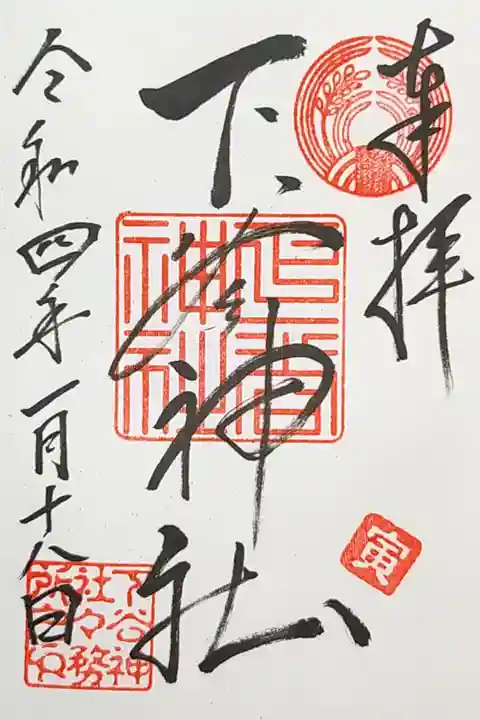 奉拝
下谷神社
令和四年一月十八日
寅
下谷神
社々務
所之印